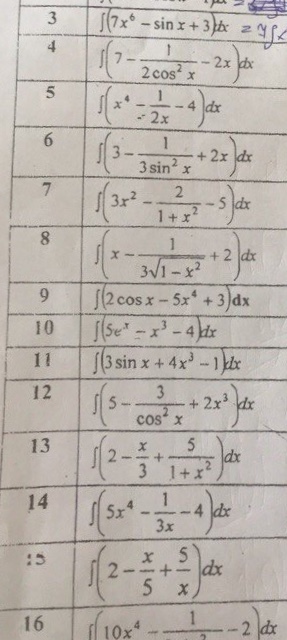 3 ∫(7x⁶ − sin x + 3)dx = 7∫
4 ∫(7 − 1/(2cos² x) − 2x)dx
5 ∫(x⁴ − 1/(2x) − 4)dx
6 ∫(3 − 1/(3 sin² x) + 2x)dx
7 ∫(3x² − 2/(1 + x²) − 5)dx
8 ∫(x − 1/(3√(1 − x²)) + 2)dx
9 ∫(2 cos x − 5x⁴ + 3)dx
10 ∫(5eˣ − x³ − 4)dx
11 ∫(3 sin x + 4x³ − 1)dx
12 ∫(5 − 3/(cos² x) + 2x³)dx
13 ∫(2 − x/3 + 5/(1 + x²))dx
14 ∫(5x⁴ − 1/(3x) − 4)dx
15 ∫(2 − x/5 + 5/x)dx
16 ∫(10x⁴ − 1 − 2)dx